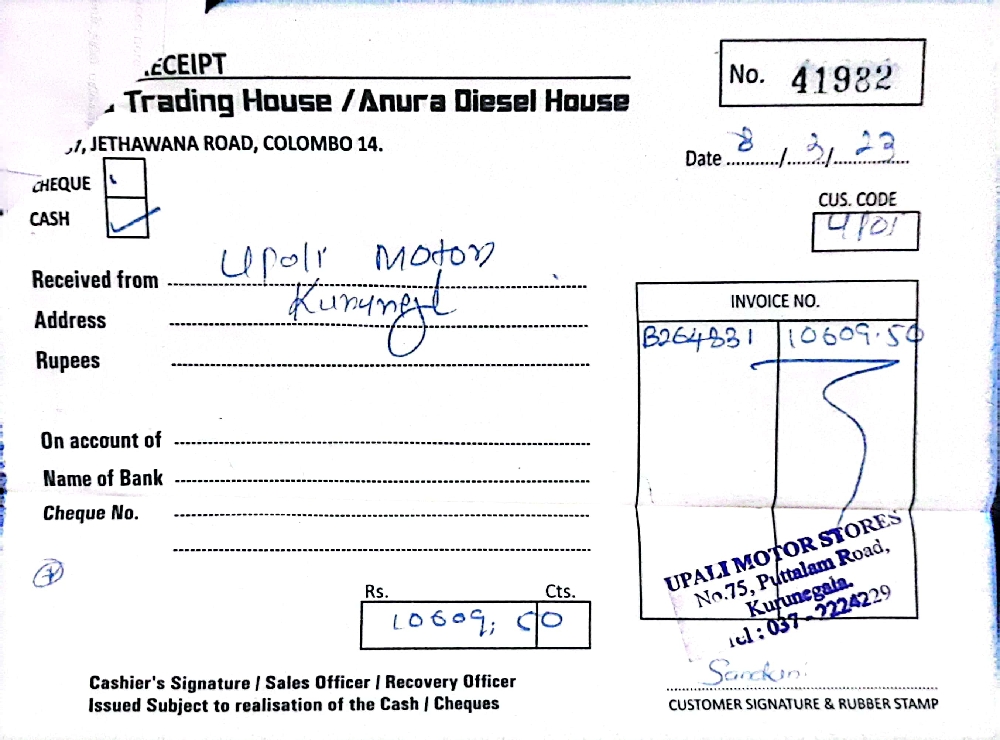 RECEIPT
No. 41982
Trading House / Anura Diesel House
JETHAWANA ROAD, COLOMBO 14.
Date 8 / 3 / 23
CHEQUE
CASH ✓
CUS. CODE
4/01
Received from Upali Motors
Address Kurunegala
Rupees
INVOICE NO.
B264831 10609.50
On account of
Name of Bank
Cheque No.
UPALI MOTOR STORES
No.75, Puttalam Road,
Kurunegala.
Tel : 037 - 2224229
Rs. Cts.
10609; 50
Sandani
Cashier's Signature / Sales Officer / Recovery Officer
Issued Subject to realisation of the Cash / Cheques
CUSTOMER SIGNATURE & RUBBER STAMP